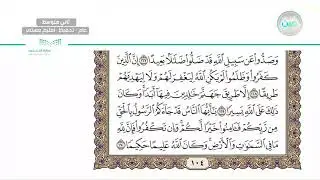 ثاني متوسط
عام - تحفيظ - تعليم مستمر
عين
وَصَدُّوا۟ عَن سَبِيلِ ٱللَّهِ قَدْ ضَلُّوا۟ ضَلَـٰلًۢا بَعِيدًا ١٦٧ إِنَّ ٱلَّذِينَ
كَفَرُوا۟ وَظَلَمُوا۟ لَمْ يَكُنِ ٱللَّهُ لِيَغْفِرَ لَهُمْ وَلَا لِيَهْدِيَهُمْ
طَرِيقًا ١٦٨ إِلَّا طَرِيقَ جَهَنَّمَ خَـٰلِدِينَ فِيهَآ أَبَدًا وَكَانَ
ذَٰلِكَ عَلَى ٱللَّهِ يَسِيرًا ١٦٩ يَـٰٓأَيُّهَا ٱلنَّاسُ قَدْ جَآءَكُمُ ٱلرَّسُولُ بِٱلْحَقِّ
مِن رَّبِّكُمْ فَـَٔامِنُوا۟ خَيْرًا لَّكُمْ وَإِن تَكْفُرُوا۟ فَإِنَّ لِلَّهِ
مَا فِى ٱلسَّمَـٰوَٰتِ وَٱلْأَرْضِ وَكَانَ ٱللَّهُ عَلِيمًا حَكِيمًا ١٧٠
١٠٤